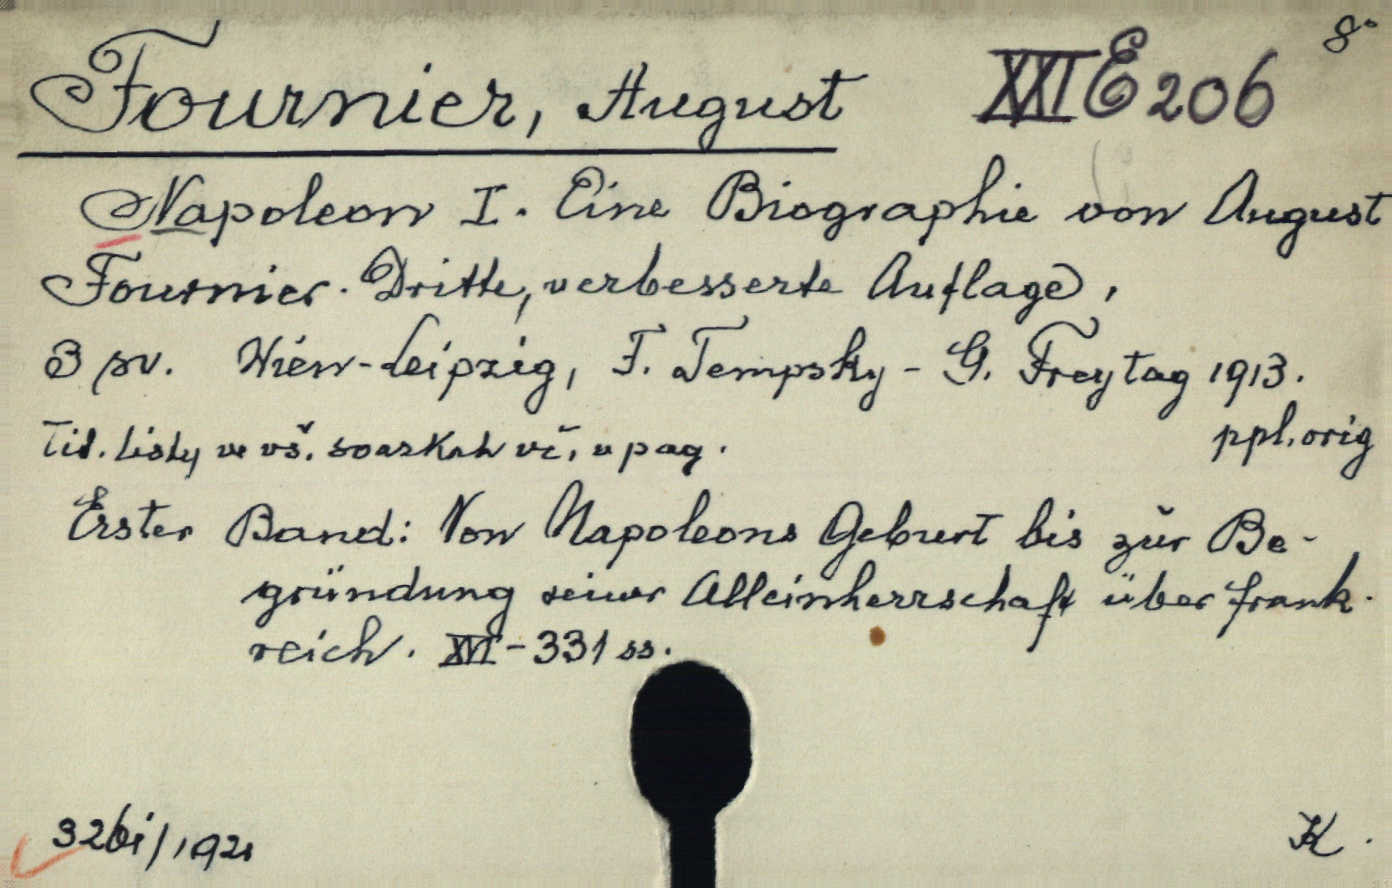 8°
Fournier, August XXI E 206
Napoleon I. Eine Biographie von August
Fournier. Dritte, verbesserte Auflage,
3 sv. Wien-Leipzig, F. Tempsky - G. Freytag 1913.
Tit. listy ve vš. svazkah vč. v pag. ppl. orig
Erster Band: Von Napoleons Geburt bis zŭr Be-
gründung seiner Alleinherrschaft über Frank-
reich. XVI-331 ss.
32bi/1921 K.